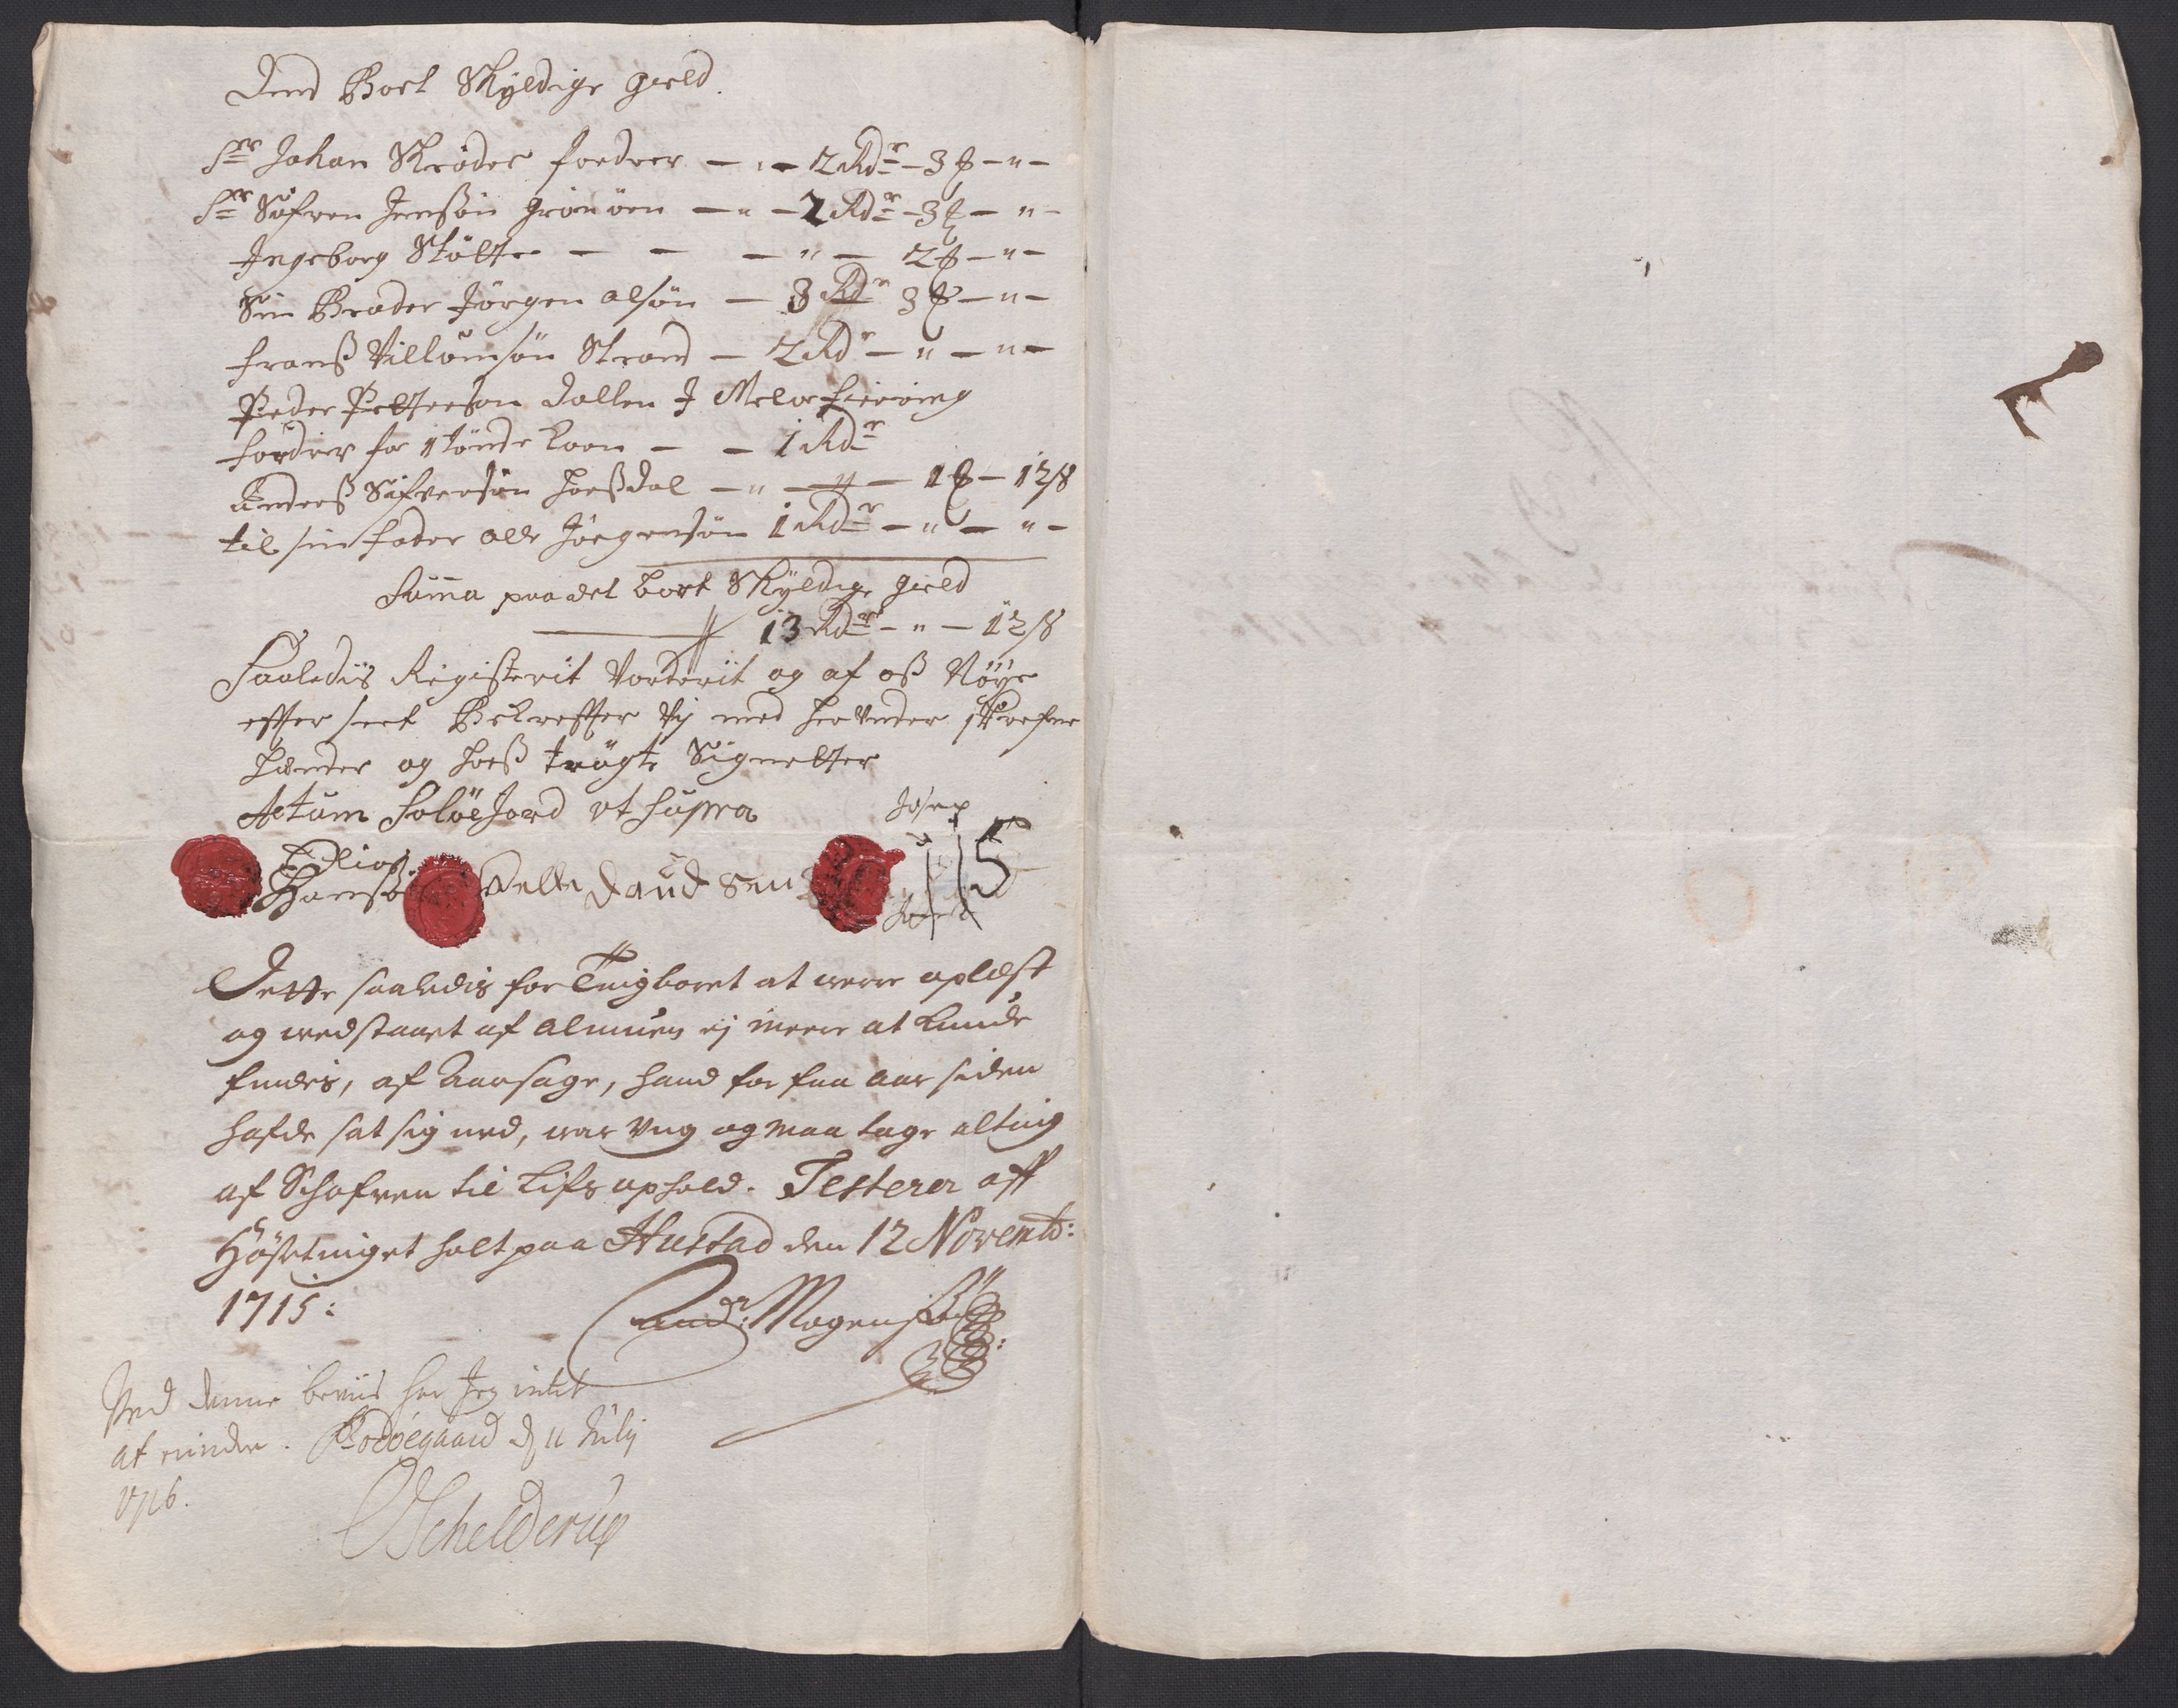 Dend Bort Skÿldige gield.
Sr Johan Skrøder fordrer — " — 2 Rdr — 3 ₰ — " —
Sr Søfren Jensøn Grönöen — " — 2 Rdr — 3 ₰ — " —
Ingeborg Stöltte — — — " — 2 ₰ — " —
Sin Broder Jörgen olsön — 3 Rdr 3 ₰ — " —
franß Villumsön Strand — 2 Rdr — " — " —
Peder Pettersøn dallen J Melor fierring
fordrer for 1 tönde Korn — — 1 Rdr
Anderß Sifversøn horßdal — " — " — 1 ₰ — 12 ß
til sin fader olle Jörgensön 1 Rdr — " — " —
Suma paa det bort Skÿldige gield
13 Rdr — " — 12 ß
Saaledis Registerit Vorderit og af oß Nöÿe
effter seet Bekreffter Vij med her under skrefne
hender og hoß trögte Signetter
Actum Solöefiord vt supra
Josep
Elias
Hansø
Pelle daud sen
115
Dette saaledis for Tingboret at were oplæst
og wedstaaet af Almuen ej meere at kunde
findes, af Aarsage, hand for faa aar siden
hafde sat sig ned, war ung og maa tage alting
af Schofven til Lifs ophold. Testerer aff
Höstetinget holt paa Hustad den 12 Novemb:
1715:
Andr: Mogensön
Ved denne beviis har Jeg intet
at erindre. Bodöegaard d 11 Julij
1716.
OSchelderup